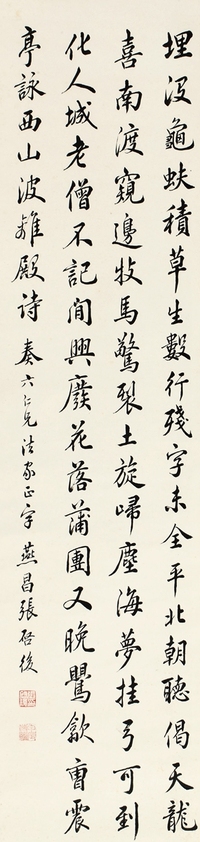 埋沒龜蚨積草生數行殘字未全平北朝聽偈天龍
喜南渡窺邊牧馬驚裂土旋歸塵海夢挂弓可到
化人城老僧不記間興廢花落蒲團又晚鸎歙曹震
亭詠西山波離殿詩 奏六仁兄法家正字 燕昌張啓後